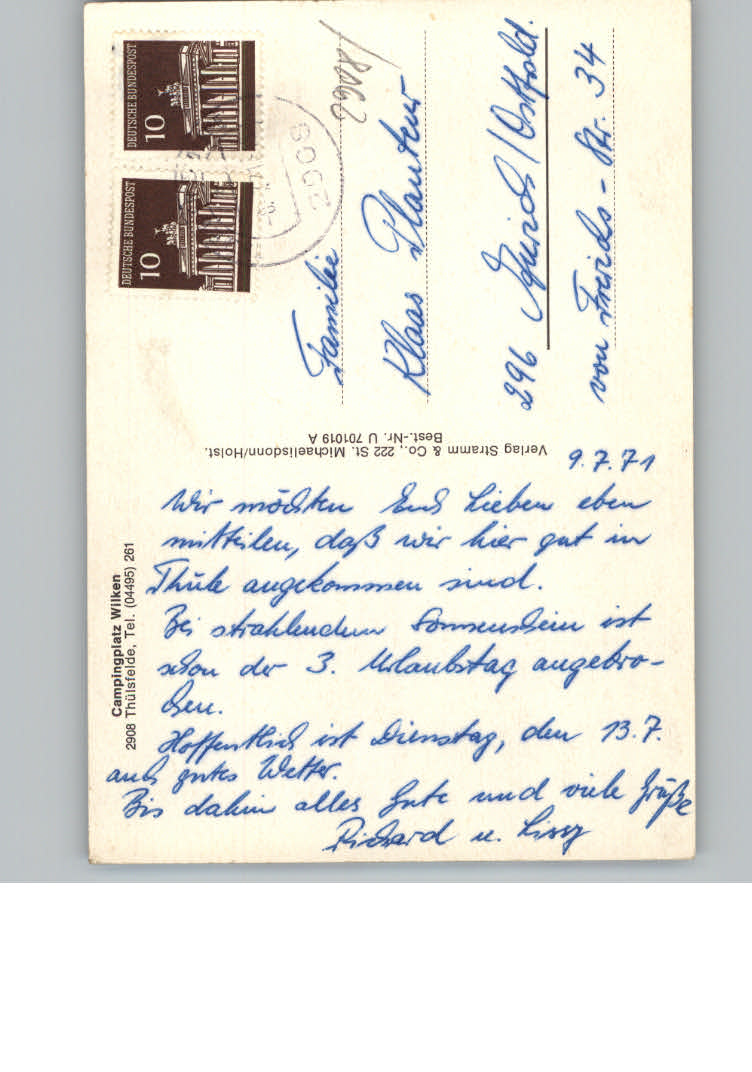 DEUTSCHE BUNDESPOST
10
DEUTSCHE BUNDESPOST
10
Familie
Klaas
296 Aurich/Ostfrild.
von Str. 34
Verlag Stramm & Co., 222 St. Michaelisdonn/Holst.
Best.-Nr. U 701019 A
Campingplatz Wilken
2908 Thülsfelde, Tel. (04495) 261
9.7.71
Wir möchten Euch Lieben eben
mitteilen, daß wir hier gut in
Thüle angekommen sind.
Bei strahlendem Sonnenschein ist
schon der 3. Urlaubstag angebro-
chen.
Hoffentlich ist Dienstag, den 13.7.
auch gutes Wetter.
Bis dahin alles Gute und viele Grüße
Richard u. Lissy